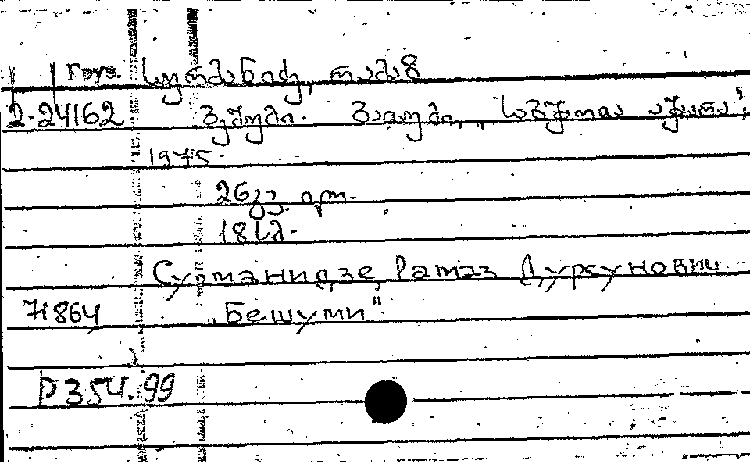 Груз. სურმანიძე, რამაზ
2-24162 ბეშუმი. ბათუმი, „საბჭოთა აჭარა“,
1975.
26გვ. ილ.
18სმ.
Сурманидзе, Рамаз Дурсунович
71864 „Бешуми“
Р354.99